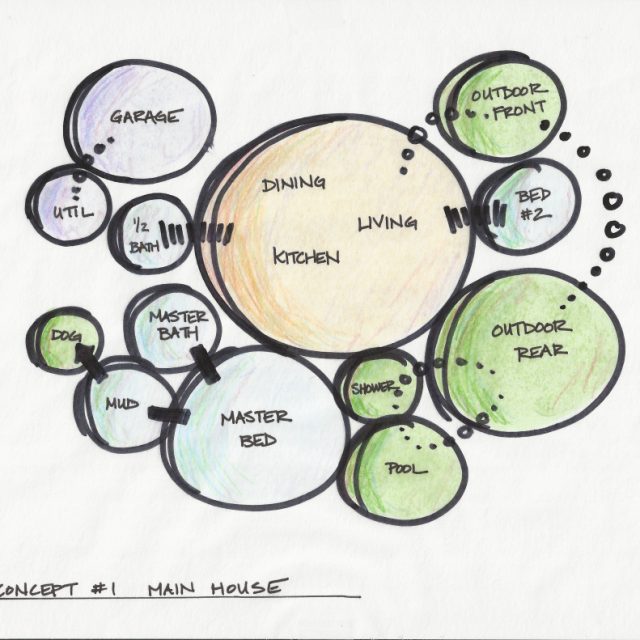 OUTDOOR
FRONT
GARAGE
DINING
BED
#2
UTIL
1/2
BATH
LIVING
KITCHEN
MASTER
BATH
OUTDOOR
REAR
DOG
SHOWER
MUD
MASTER
BED
POOL
CONCEPT #1 MAIN HOUSE